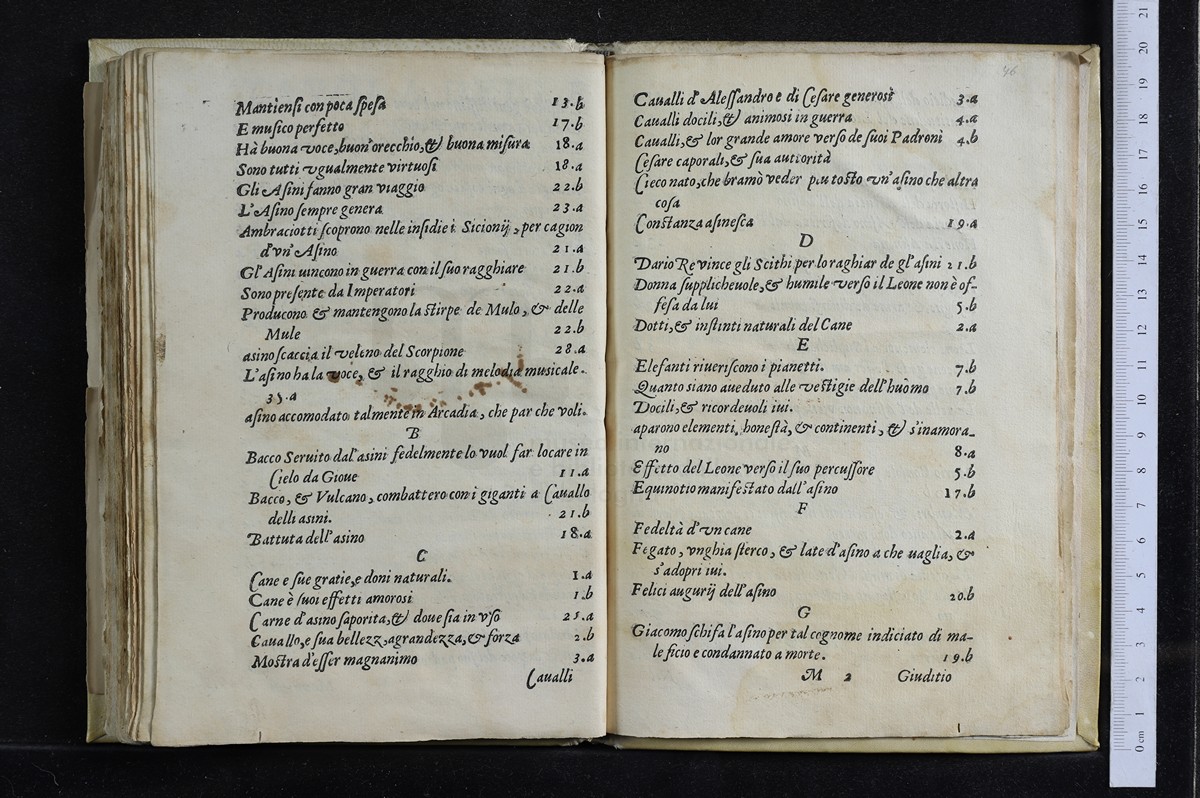 Mantiensi con poca spesa 13.b
E musico perfetto 17.b
Hà buona voce, buon'orecchio, & buona misura 18.a
Sono tutti vgualmente virtuosi 18.a
Gli Asini fanno gran viaggio 22.b
L'Asino sempre genera 23.a
Ambraciotti scoprono nelle insidie i Sicionij, per cagion
d'vn' Asino 21.a
Gl' Asini uincono in guerra con il suo ragghiare 21.b
Sono presente da Imperatori 22.a
Producono & mantengono la stirpe de Mulo, & delle
Mule 22.b
asino scaccia il veleno del Scorpione 28.a
L'asino ha la voce, & il ragghio di melodia musicale.
35.a
asino accomodato talmente in Arcadia, che par che voli.
B
Bacco Seruito dal'asini fedelmente lo vuol far locare in
Cielo da Gioue 11.a
Bacco, & Vulcano, combattero con i giganti a Cauallo
delli asini. 21.b
Battuta dell'asino 18.a
C
Cane e sue gratie, e doni naturali. 1.a
Cane è suoi effetti amorosi 1.b
Carne d'asino saporita, & doue sia in vso 25.a
Cauallo, e sua bellezz, agrandezza, & forza 2.b
Mostra d'esser magnanimo 3.a
Caualli
46
Caualli d'Alessandro e di Cesare generosi 3.a
Caualli docili, & animosi in guerra 4.a
Caualli, & lor grande amore verso de suoi Padroni 4.b
Cesare caporali, & sua auttorità
Cieco nato, che bramò veder piu tosto vn'asino che altra
cosa
Constanza asinesca 19.a
D
Dario Re vince gli Scithi per lo raghiar de gl'asini 21.b
Donna supplicheuole, & humile verso il Leone non è of-
fesa da lui 5.b
Dotti, & instinti naturali del Cane 2.a
E
Elefanti riueriscono i pianetti. 7.b
Quanto siano aueduto alle vestigie dell'huomo 7.b
Docili, & ricordeuoli iui.
aparono elementi, honestà, & continenti, & s'inamora-
no 8.a
Effetto del Leone verso il suo percussore 5.b
Equinotio manifestato dall'asino 17.b
F
Fedeltà d'vn cane 2.a
Fegato, vnghia sterco, & late d'asino a che uaglia, &
s'adopri iui.
Felici augurij dell'asino 20.b
G
Giacomo schifa l'asino per tal cognome indiciato di ma-
leficio e condannato a morte. 19.b
M 2 Giuditio
0 cm 1 2 3 4 5 6 7 8 9 10 11 12 13 14 15 16 17 18 19 20 21